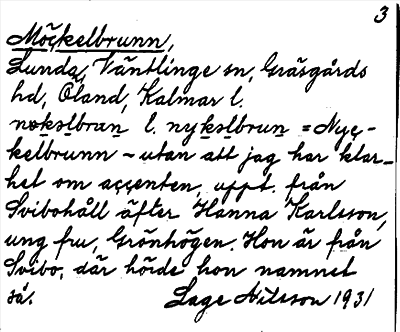 3
Möckelbrunn,
Lunda, Väntlinge sn, Gräsgårds
hd, Öland, Kalmar l.
nøkəlbrun l. nykəlbrun = Nyc-
kelbrunn – utan att jag har klar-
het om accenten, uppt. från
Svibohåll äfter Hanna Karlsson,
ung fru, Grönhögen. Hon är från
Svibo, där hörde hon namnet
så. Lage Nilsson 1931